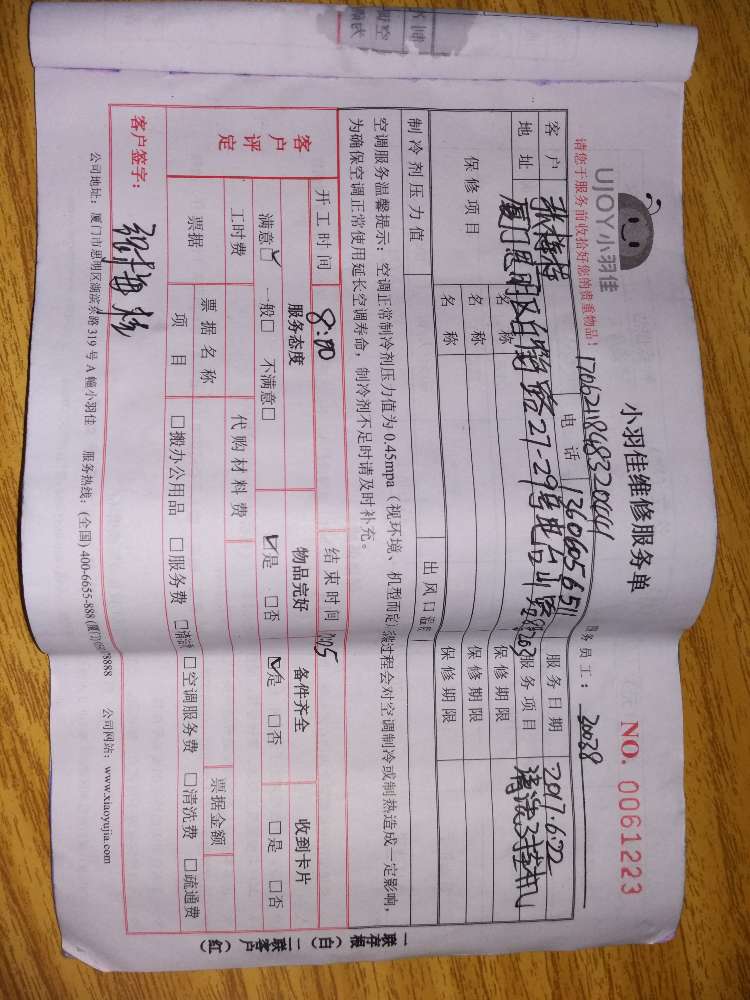 UJOY小羽佳
小羽佳维修服务单
NO. 0061223
请您于服务前收拾好您的贵重物品!
170621184832004
务员工: 20038
客户
电话
服务日期 2017.6.22
地址 厦门思明区 27-29号
服务项目 清洗
保修项目
名称
保修期限
名称
保修期限
名称
保修期限
制冷剂压力值
出风口
空调服务温馨提示:空调正常制冷剂压力值为0.45mpa(视环境、机型而定)
过程会对空调制冷或制热造成一定影响,
为确保空调正常使用延长空调寿命,制冷剂不足时请及时补充。
开工时间 8:00
结束时间
客户评定
服务态度
物品完好
备件齐全
收到卡片
满意☑ 一般□ 不满意□
☑是 □否
☑是 □否
□是 □否
工时费
代购材料费
票据
票据名称
票据金额
项目
□搬办公用品 □服务费 □清洁 □空调服务费 □清洗费 □疏通费
客户签字:
公司地址:厦门市思明区湖滨东路319号A幢小羽佳 服务热线:(全国)400-6655-888
公司网站:www.xiaoyujia.com
一联存根(白)二联客户(红)